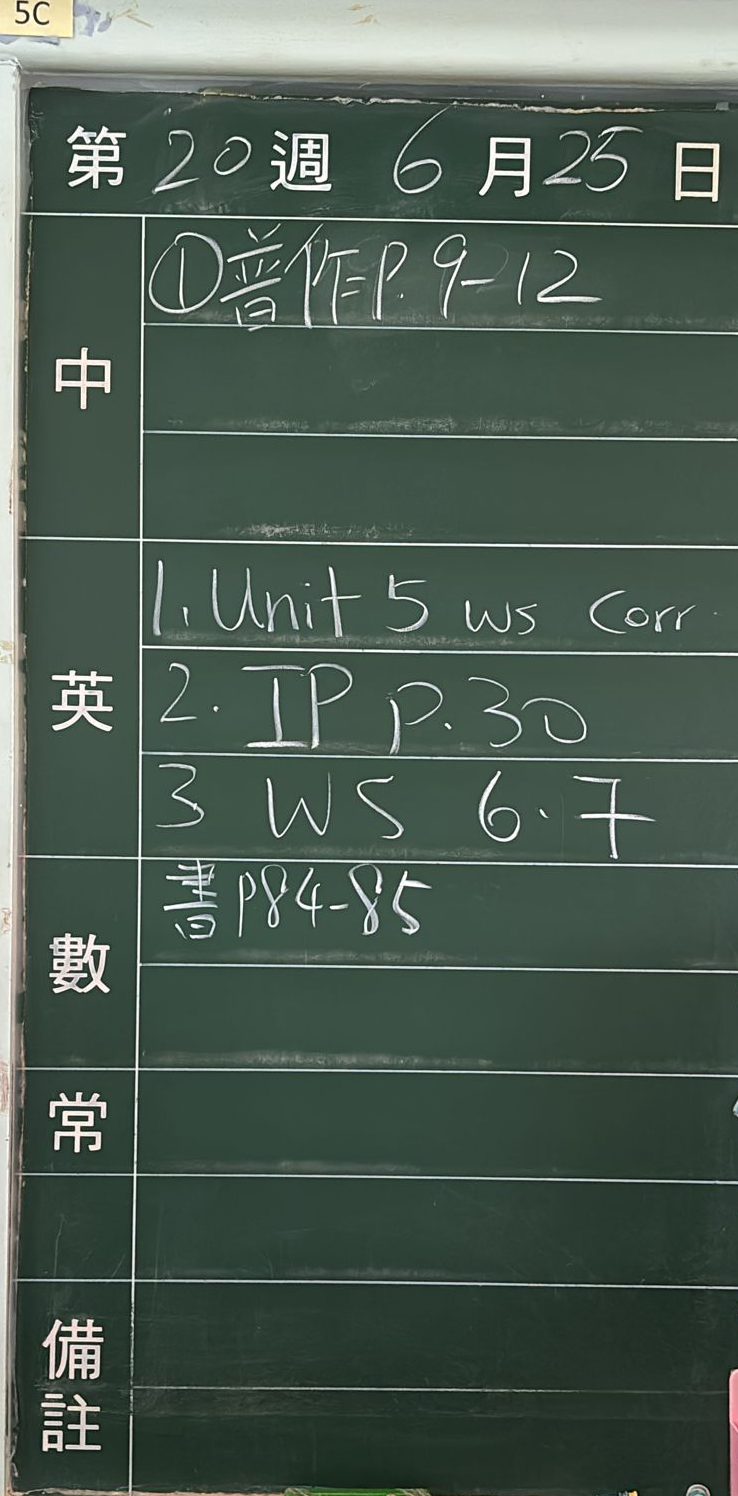 5C
第 20 週 6 月 25 日
中
①普作P.9-12
英
1. Unit 5 ws Corr
2. IP p.30
3 WS 6.7
數
書P84-85
常
備註